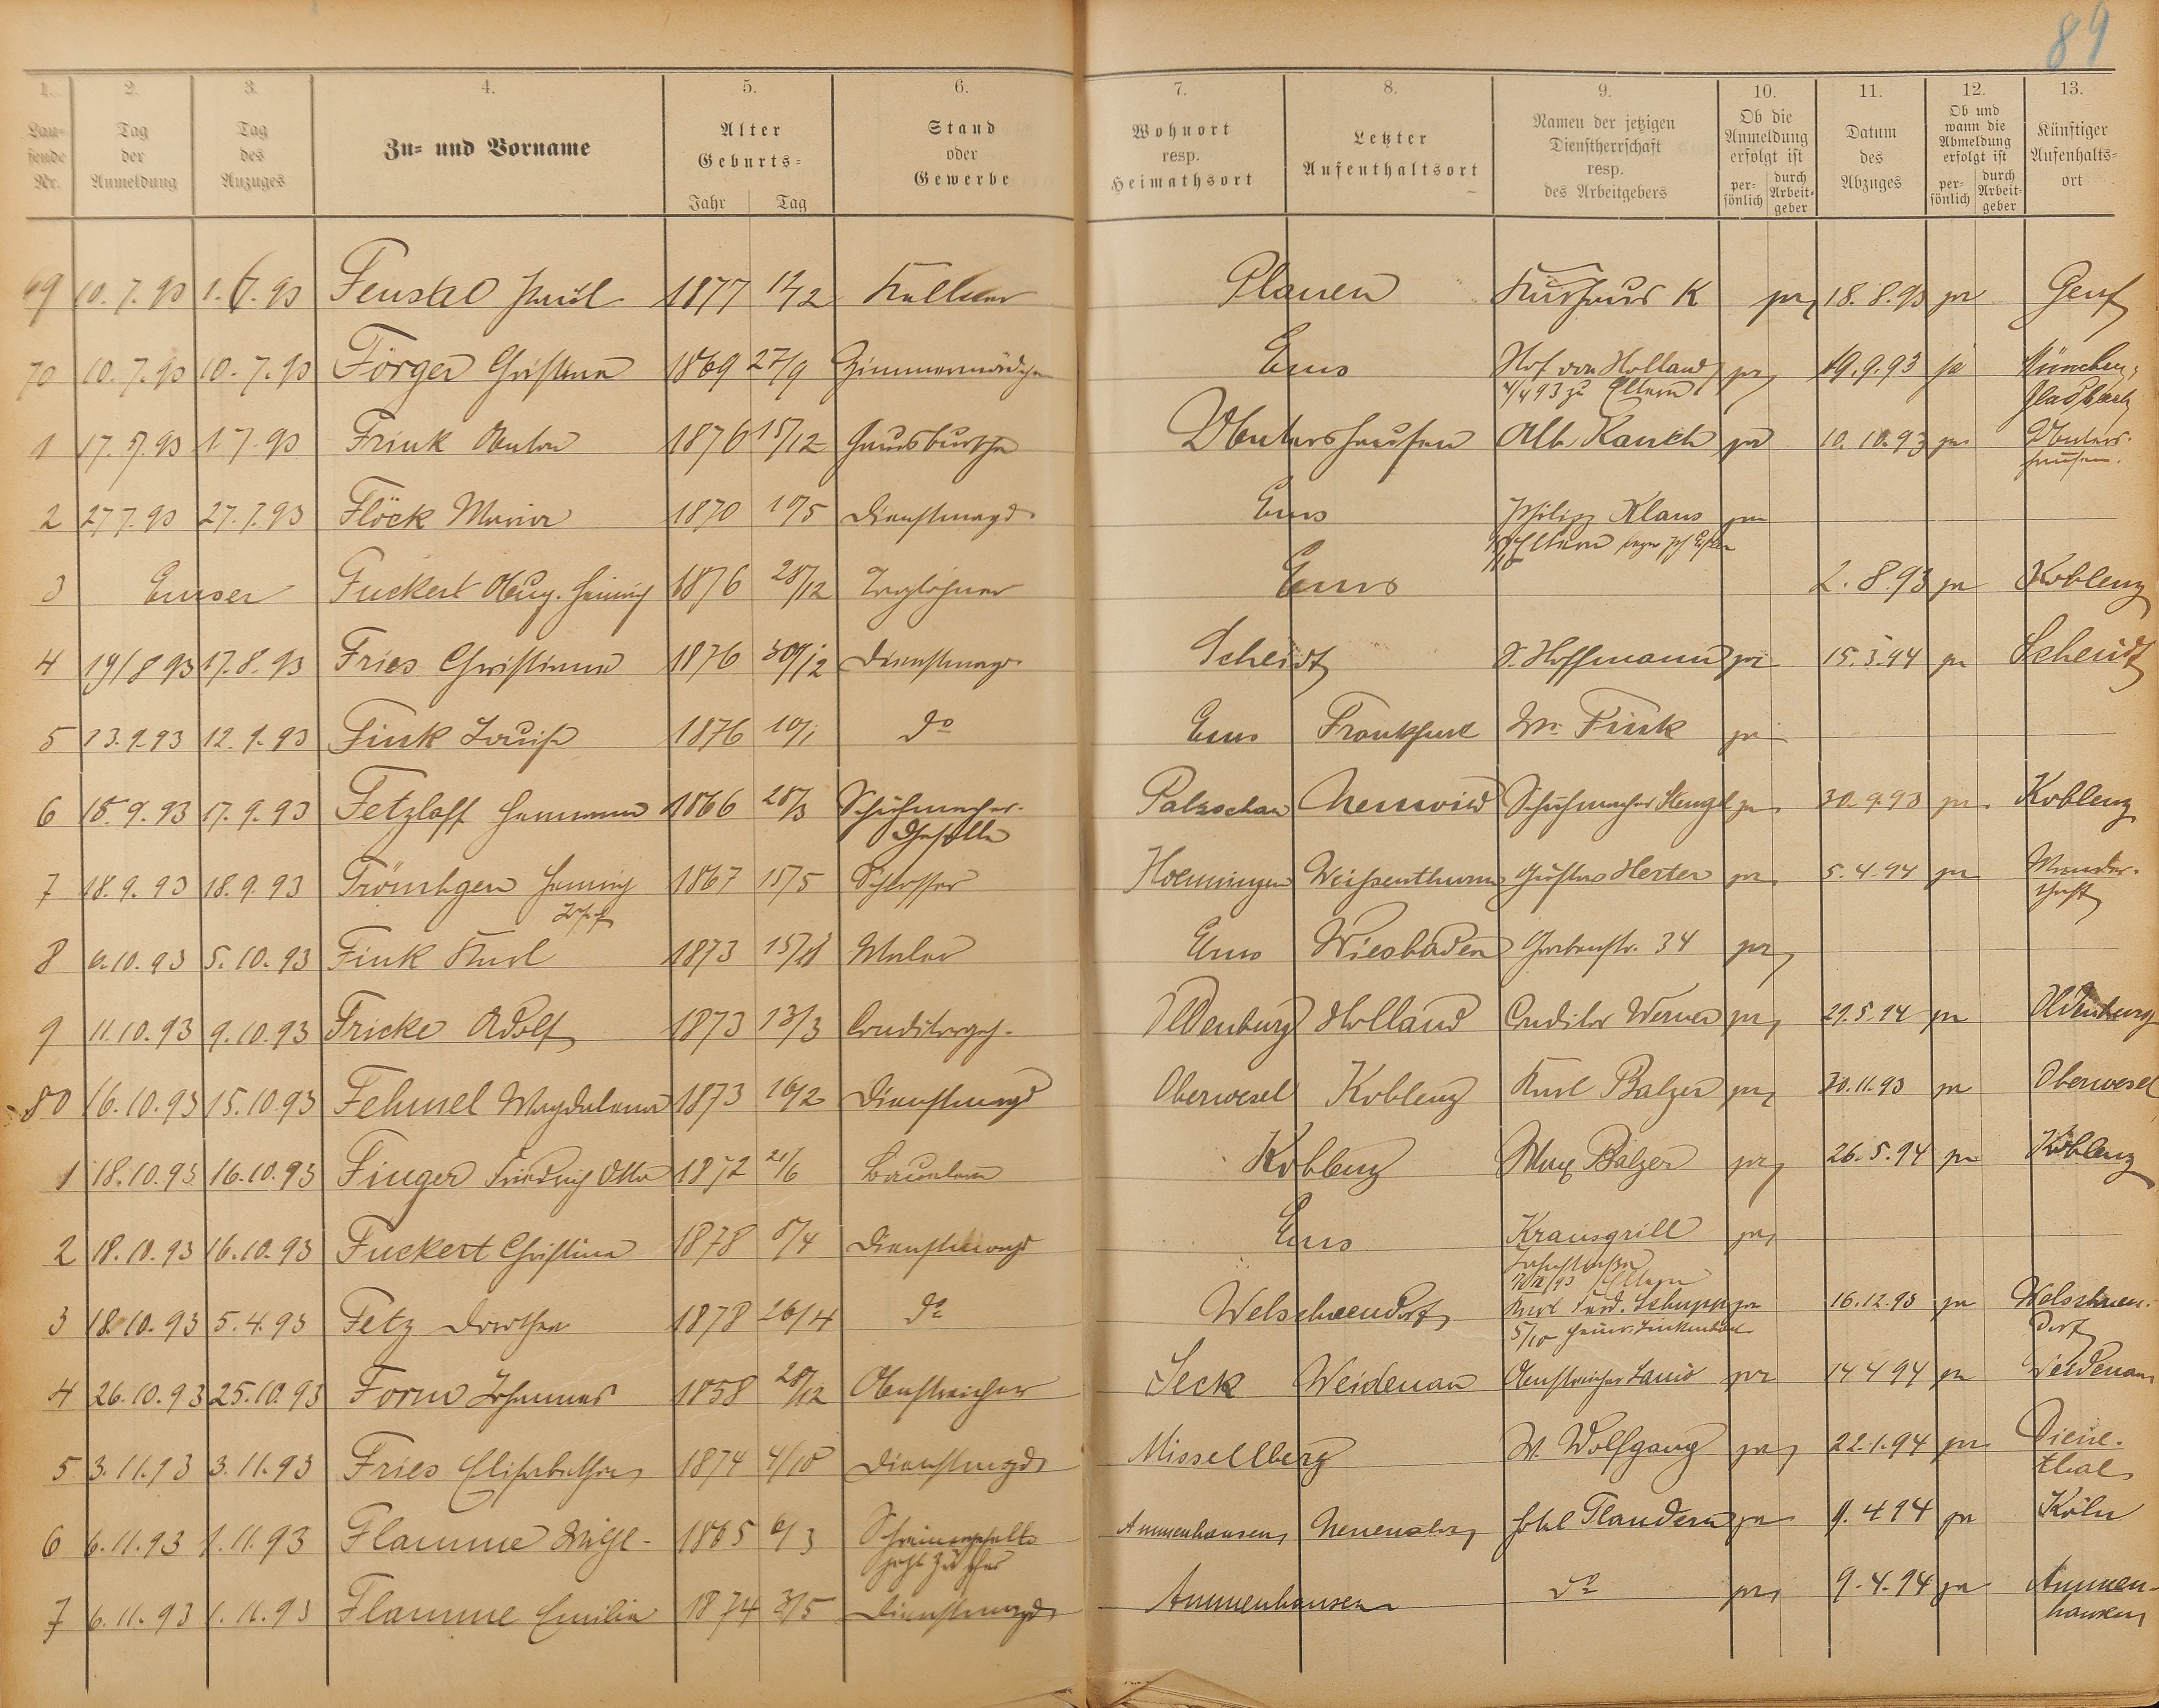 89
1. 2. 3. 4. 5. 6. 7. 8. 9. 10. 11. 12. 13.
Laufende Nr. Tag der Anmeldung Tag des Anzuges Zu- und Vorname Alter Geburts- Jahr Tag Stand oder Gewerbe Wohnort resp. Heimathsort Letzter Aufenthaltsort Namen der jetzigen Dienstherrschaft resp. des Arbeitgebers Ob die Anmeldung erfolgt ist persönlich durch Arbeitgeber Datum des Abzuges Ob und wann die Abmeldung erfolgt ist persönlich durch Arbeitgeber Künftiger Aufenhalts-ort
69 10. 7. 93 1. 7. 93 Paul 1877 Kellner Plauen Kurhaus K 18. 8. 93 Genf
70 10. 7. 93 10. 7. 93 Förger Christina 1869 27/9 Zimmermädchen Ems Hof von Holland 19. 9. 93 ja München-
zu Eltern Gladbach
1 17. 7. 93 1 7. 93 Frink Anton 1876 15/12 Hausbursche Alb. Rauch 10. 10. 93
2 27 7. 93 27. 7. 93 Flöck Maria 1870 Dienstmagd Ems Philipp Klaus
Eltern
3 Emser Fuckert Aug. Heinrich 1876 28/12 Taglöhner Ems 2. 8. 93 Koblenz
4 19/8 93 17. 8. 93 Fries Christiana 1876 30/12 Dienstmagd Scheidt S. Hoffmann 15. 3. 94 Scheidt
5 13. 9. 93 12. 9. 93 Fink Louise 1876 10/1 do Ems Frankfurt Fink
6 18. 9. 93 17. 9. 93 Fetzlaff Hermann 1866 28/3 Schuhmacher- Palzschau Neuwied Schuhmacher Stengel 30. 9. 93 Koblenz
Geselle
7 18. 9. 93 18. 9. 93 Frömbgen Heinrich 1867 15/5 Schlosser Hoenningen Weißenthurm Herter 5. 4. 94 Wander-
Josef schaft
8 6. 10. 93 5. 10. 93 Fink Karl 1873 Maler Ems Wiesbaden Grabenstr. 34
9 11. 10. 93 9. 10. 93 Fricke Adolf 1873 13/3 Conditorgeh. Oldenburg Holland Conditor Werner 29. 5. 94 Oldenburg
80 16. 10. 93 15. 10. 93 Fehmel Magdalena 1873 16/2 Dienstmagd Oberwesel Koblenz Karl Balzer 30. 11. 93 Oberwesel
1 18. 10. 93 16. 10. 93 Finger Friedrich Otto 1872 21/6 Koblenz Max Balzer 26. 5. 94 Koblenz
2 18. 10. 93 16. 10. 93 Fuckert Christina 1878 8/4 Dienstmagd Ems Krausgrill
Eltern
3 18. 10. 93 5. 4. 93 Fetz Dorothea 1878 26/4 do Welschneudorf Karl Ferd. Schupp 16. 12. 93 Welschneu-
5/10 Heinr. Linkenbach dorf
4 26. 10. 93 25. 10. 93 Form Johannes 1858 28/12 Anstreicher Seck Weidenau Anstreicher 14 4 94 Weidenau
5 3. 11. 93 3. 11. 93 Fries Elisabetha 1874 4/10 Dienstmagd Missellberg W. Wolfgang 22. 1. 94 Diene-
thal
6 6. 11. 93 1. 11. 93 Flamme Wilh. 1865 6/3 Schreinergeselle Ammenhausen Neuenahr Hotel Flandern 9. 4 94 Köln
7 6. 11. 93 1. 11. 93 Flamme Emilie 1874 3/5 Dienstmagd Ammenhausen do 9. 4. 94 Ammen-
hausen